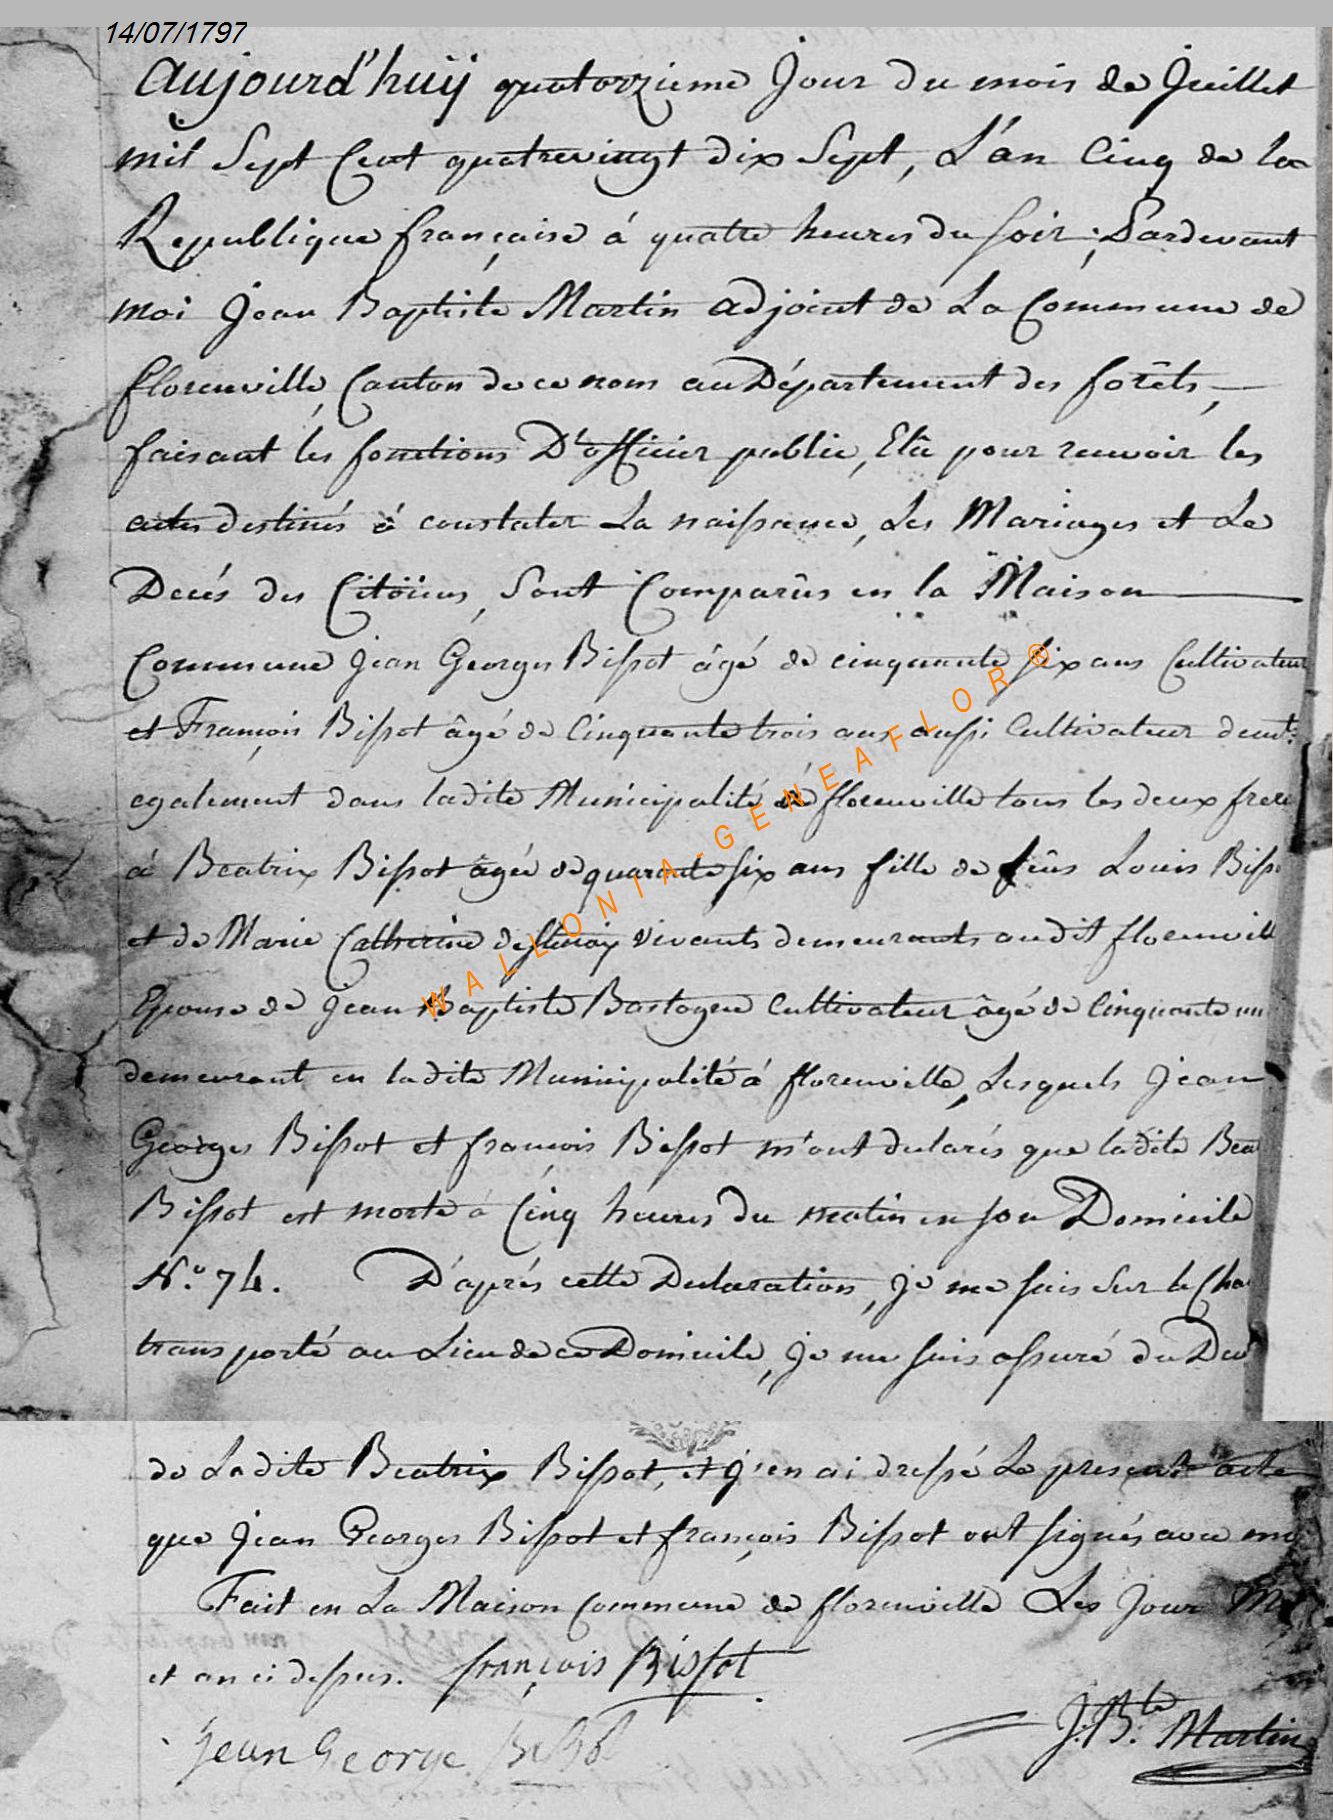 14/07/1797
Aujourd'huÿ quatorzieme Jour du mois de Juillet
mil Sept Cent quatrevingt dix Sept, L'an Cinq de la
Republique française á quatre heures du soir; Pardevant
moi Jean Baptiste Martin adjoint de La Commune de
florenville Canton de ce nom au Département des forêts,
faisant les fonctions D'officier public, Elû pour recevoir les
actes destinés á constater La naissance, Les Mariages et Le
Decés des Citöiens, Sont Comparûs en la Maison
Commune Jean Georges Bissot âgé de cinquante six ans Cultivateur
et François Bissot âgé de Cinquante trois ans aussi Cultivateur demts
egalement dans ladite Municipalité de florenville tous les deux frere
á Beatrix Bissot agée de quarante six ans fille de feûs Louis Bisso
et de Marie Catherine vivants demeurants audit florenvill
Epouse de Jean Baptiste Bastogne Cultivateur âgé de Cinquante un
demeurant en ladite Municipalité á florenville, Lesquels Jean
Georges Bissot et francois Bissot m'ont declarés que ladite Bea
Bissot est morte á Cinq heures du matin en son Domicile
N.o 74. D'aprés cette Declaration, Je me suis Sur le Cha
transporté au Lieu de ce Domicile, Je me suis assuré du Dec
de Ladite Beatrix Bissot, et J'en ai dressé Le present acte
que Jean Georges Bissot et françois Bissot ont signés avec mo
Fait en La Maison Commune de florenville Les Jour Moi
et an ci dessus. françois Bissot
Jean George Bissot
J. B.te Martin
WALLONIA-GENEAFLOR ®